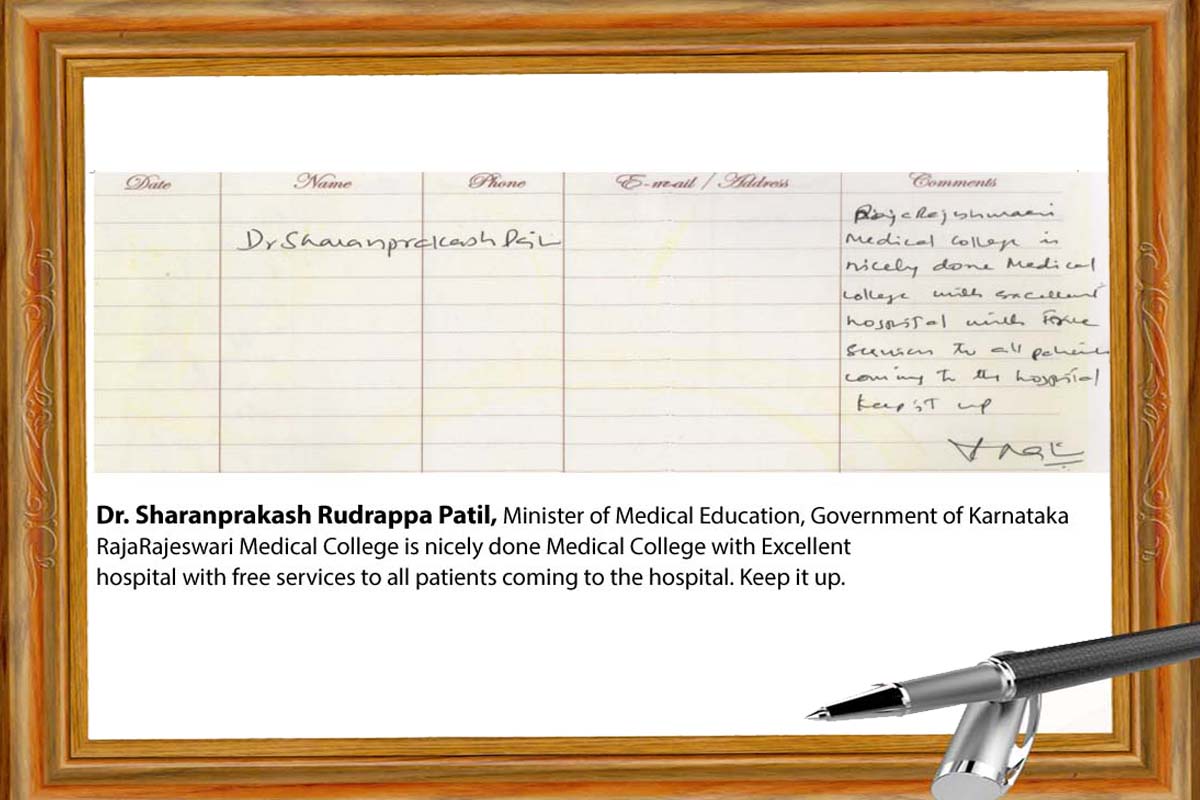 Date Name Phone E-mail / Address Comments
RajaRajeshwari
Dr Sharanprakash Patil Medical College is
nicely done Medical
college with excellent
hospital with free
services to all patients
coming to the hospital
Keep it up
Dr. Sharanprakash Rudrappa Patil, Minister of Medical Education, Government of Karnataka
RajaRajeswari Medical College is nicely done Medical College with Excellent
hospital with free services to all patients coming to the hospital. Keep it up.